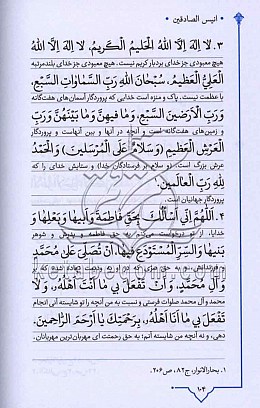 • انیس الصادقین •
۳. لا اِلهَ اِلَّا اللهُ الْحَلیمُ الْکَریمُ، لا اِلهَ اِلَّا اللهُ
هیچ معبودی جز خدای بردبار کریم نیست. هیچ معبودی جز خدای بلندمرتبه
الْعَلِیُّ الْعَظیمُ، سُبْحَانَ اللهِ رَبِّ السَّمَاوَاتِ السَّبْعِ،
با عظمت نیست. پاک و منزه است خدایی که پروردگار آسمان‌های هفت‌گانه
وَرَبِّ الْاَرَضینَ السَّبْعِ، وَمَا فیهِنَّ وَمَا بَیْنَهُنَّ وَرَبِّ
و زمین‌های هفت‌گانه است و آنچه در آنها و بین آنهاست و پروردگار
الْعَرْشِ الْعَظیمِ (وَسَلَامٌ عَلَی الْمُرْسَلینَ) وَالْحَمْدُ
عرش بزرگ است. (و سلام بر فرستادگان خدا) و ستایش خدای را که
لِلّهِ رَبِّ الْعَالَمینَ.
پروردگار جهانیان است.
۴. اَللّهُمَّ اِنّی اَسْأَلُکَ بِحَقِّ فَاطِمَةَ وَاَبیهَا وَبَعْلِهَا وَ
خدایا، از تو درخواست می‌کنم به حق فاطمه و پدرش و شوهر
بَنیهَا وَالسِّرِّ الْمُسْتَوْدَعِ فیهَا، اَنْ تُصَلِّیَ عَلی مُحَمَّدٍ
و فرزندانش، و به حق سرّی که در او به ودیعت نهاده شده که بر
وَ آلِ مُحَمَّدٍ، وَ اَنْ تَفْعَلَ بی مَا اَنْتَ اَهْلُهُ، وَ لَا
محمد و آل محمد صلوات فرستی و نسبت به من آنچه را تو شایسته آنی انجام
تَفْعَلْ بی مَا اَنَا اَهْلُهُ، بِرَحْمَتِکَ یَا اَرْحَمَ الرَّاحِمینَ.
دهی، و نه آنچه من شایسته آنم؛ به حق رحمتت ای مهربان‌ترین مهربانان.
۱. بحارالانوار، ج۸۲، ص۲۰۶.
۱۰۴